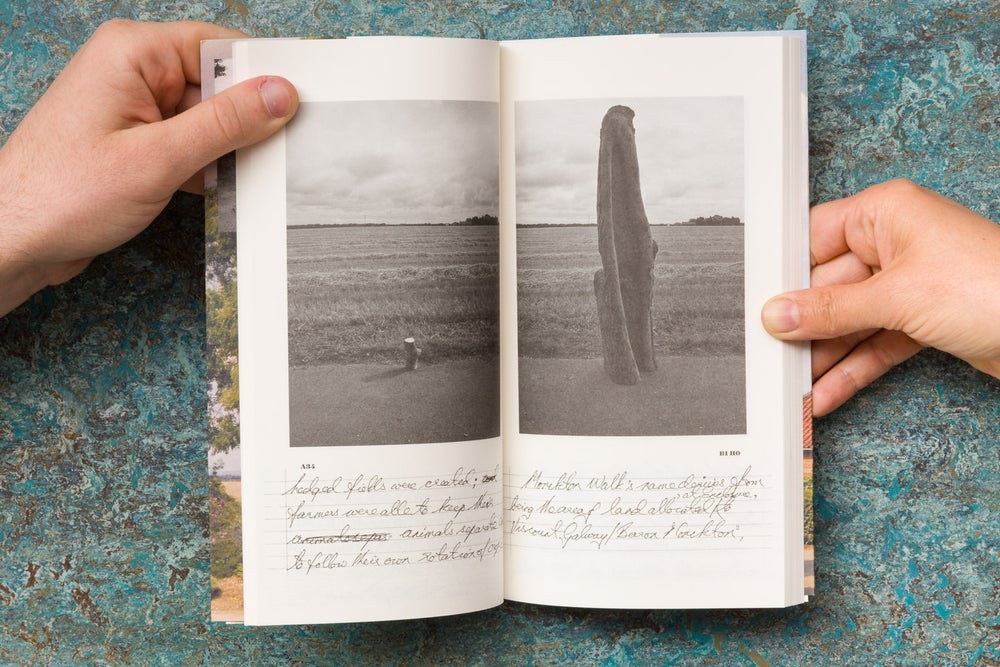 A34
hedged fields were created; and
farmers were able to keep their
animals separ animals separate
to follow their own rotation of
B1 HO
Monckton Walk's name derives from
at enclosure,
being the area of land allocated to
Viscount Galway/Baron Monckton,